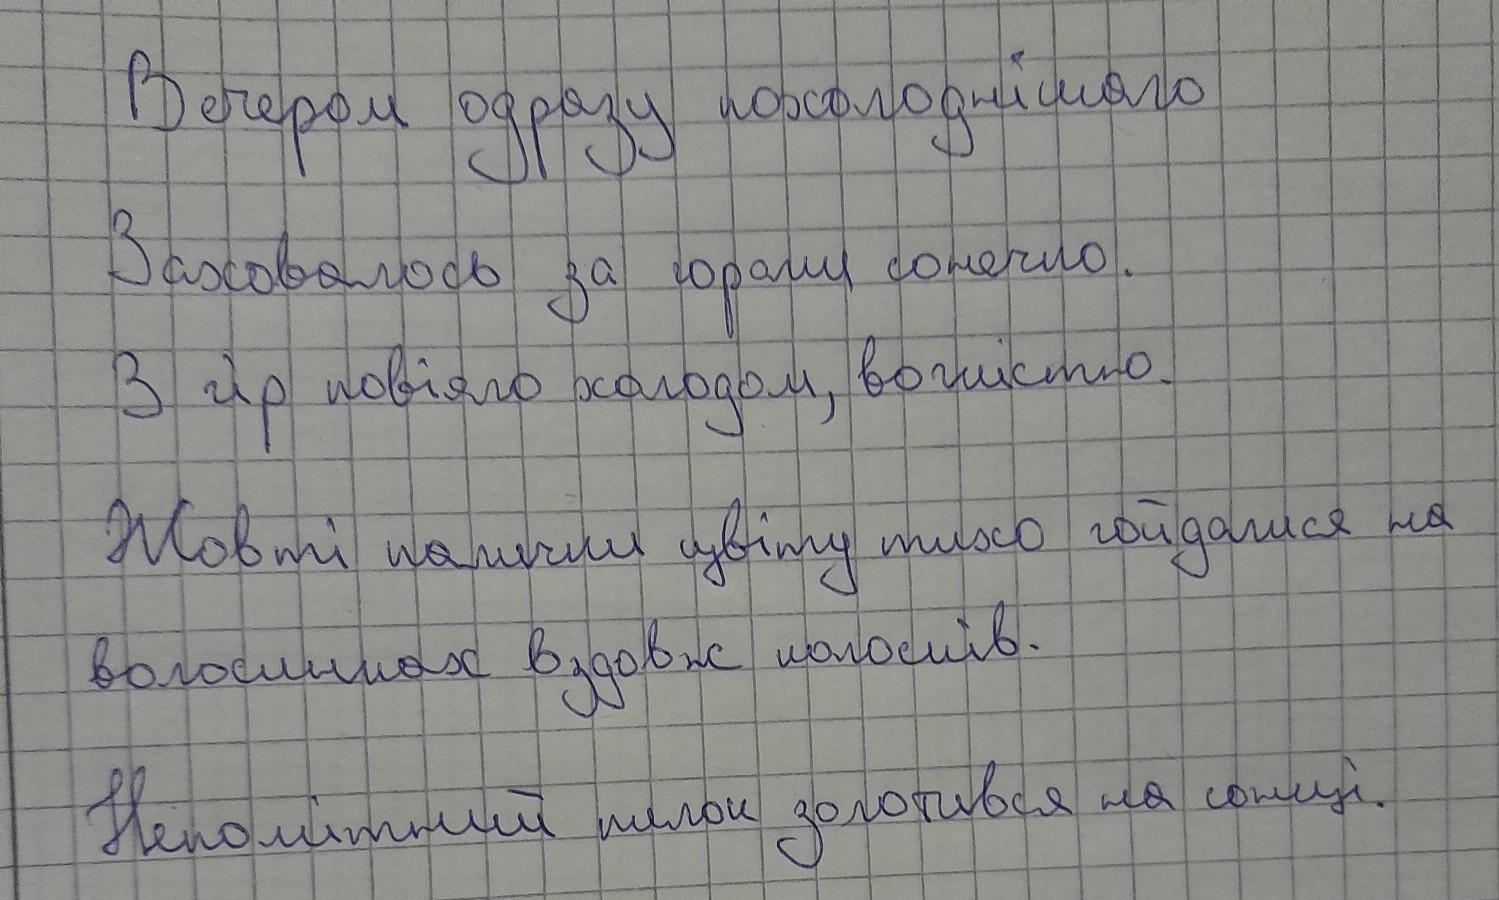 Вечером одразу похолоднішало
Заховалось за горами сонечко.
З гір повіяло холодом, вогкістю.
Жовті палички цвіту тихо гойдалися на
волосинках вздовж колосків.
Непомітний пилок золотився на сонці.